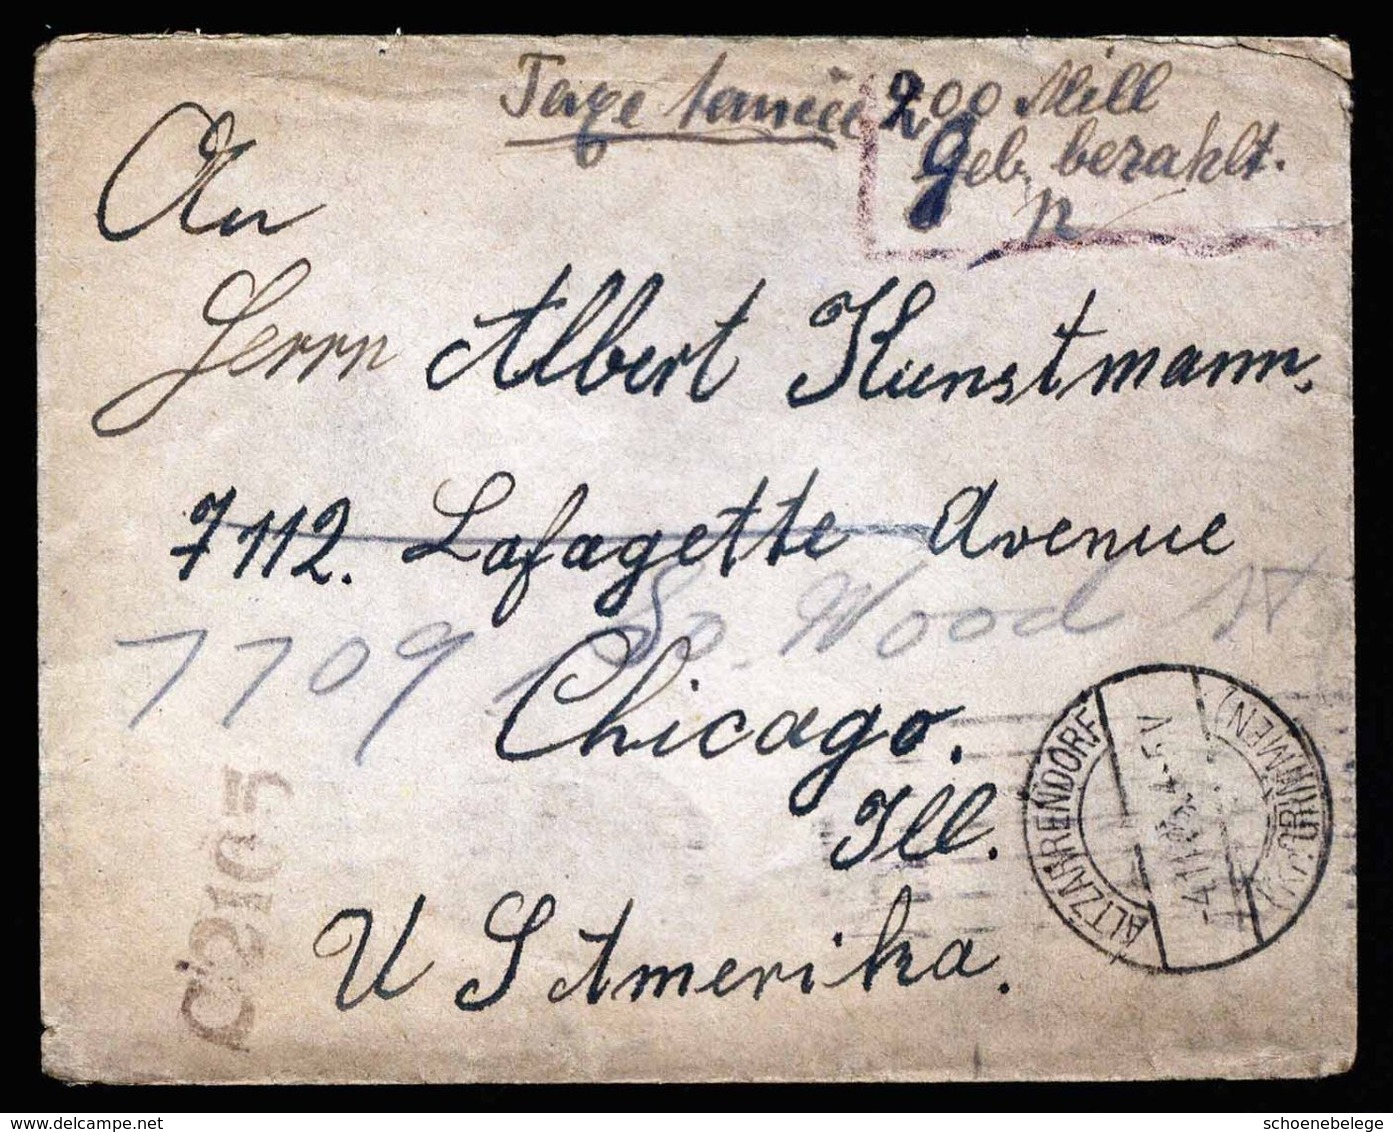 Taxe perçue 200 Mill
Geb. bezahlt.
An
Herrn Albert Kunstmann,
7112. Lafayette Avenue
7709 So. Wood St
Chicago.
Ill.
U S Amerika.
C2105
ALTZARRENDORF
-4.11.23.4-5 V
delcampe.net
schoenebelege